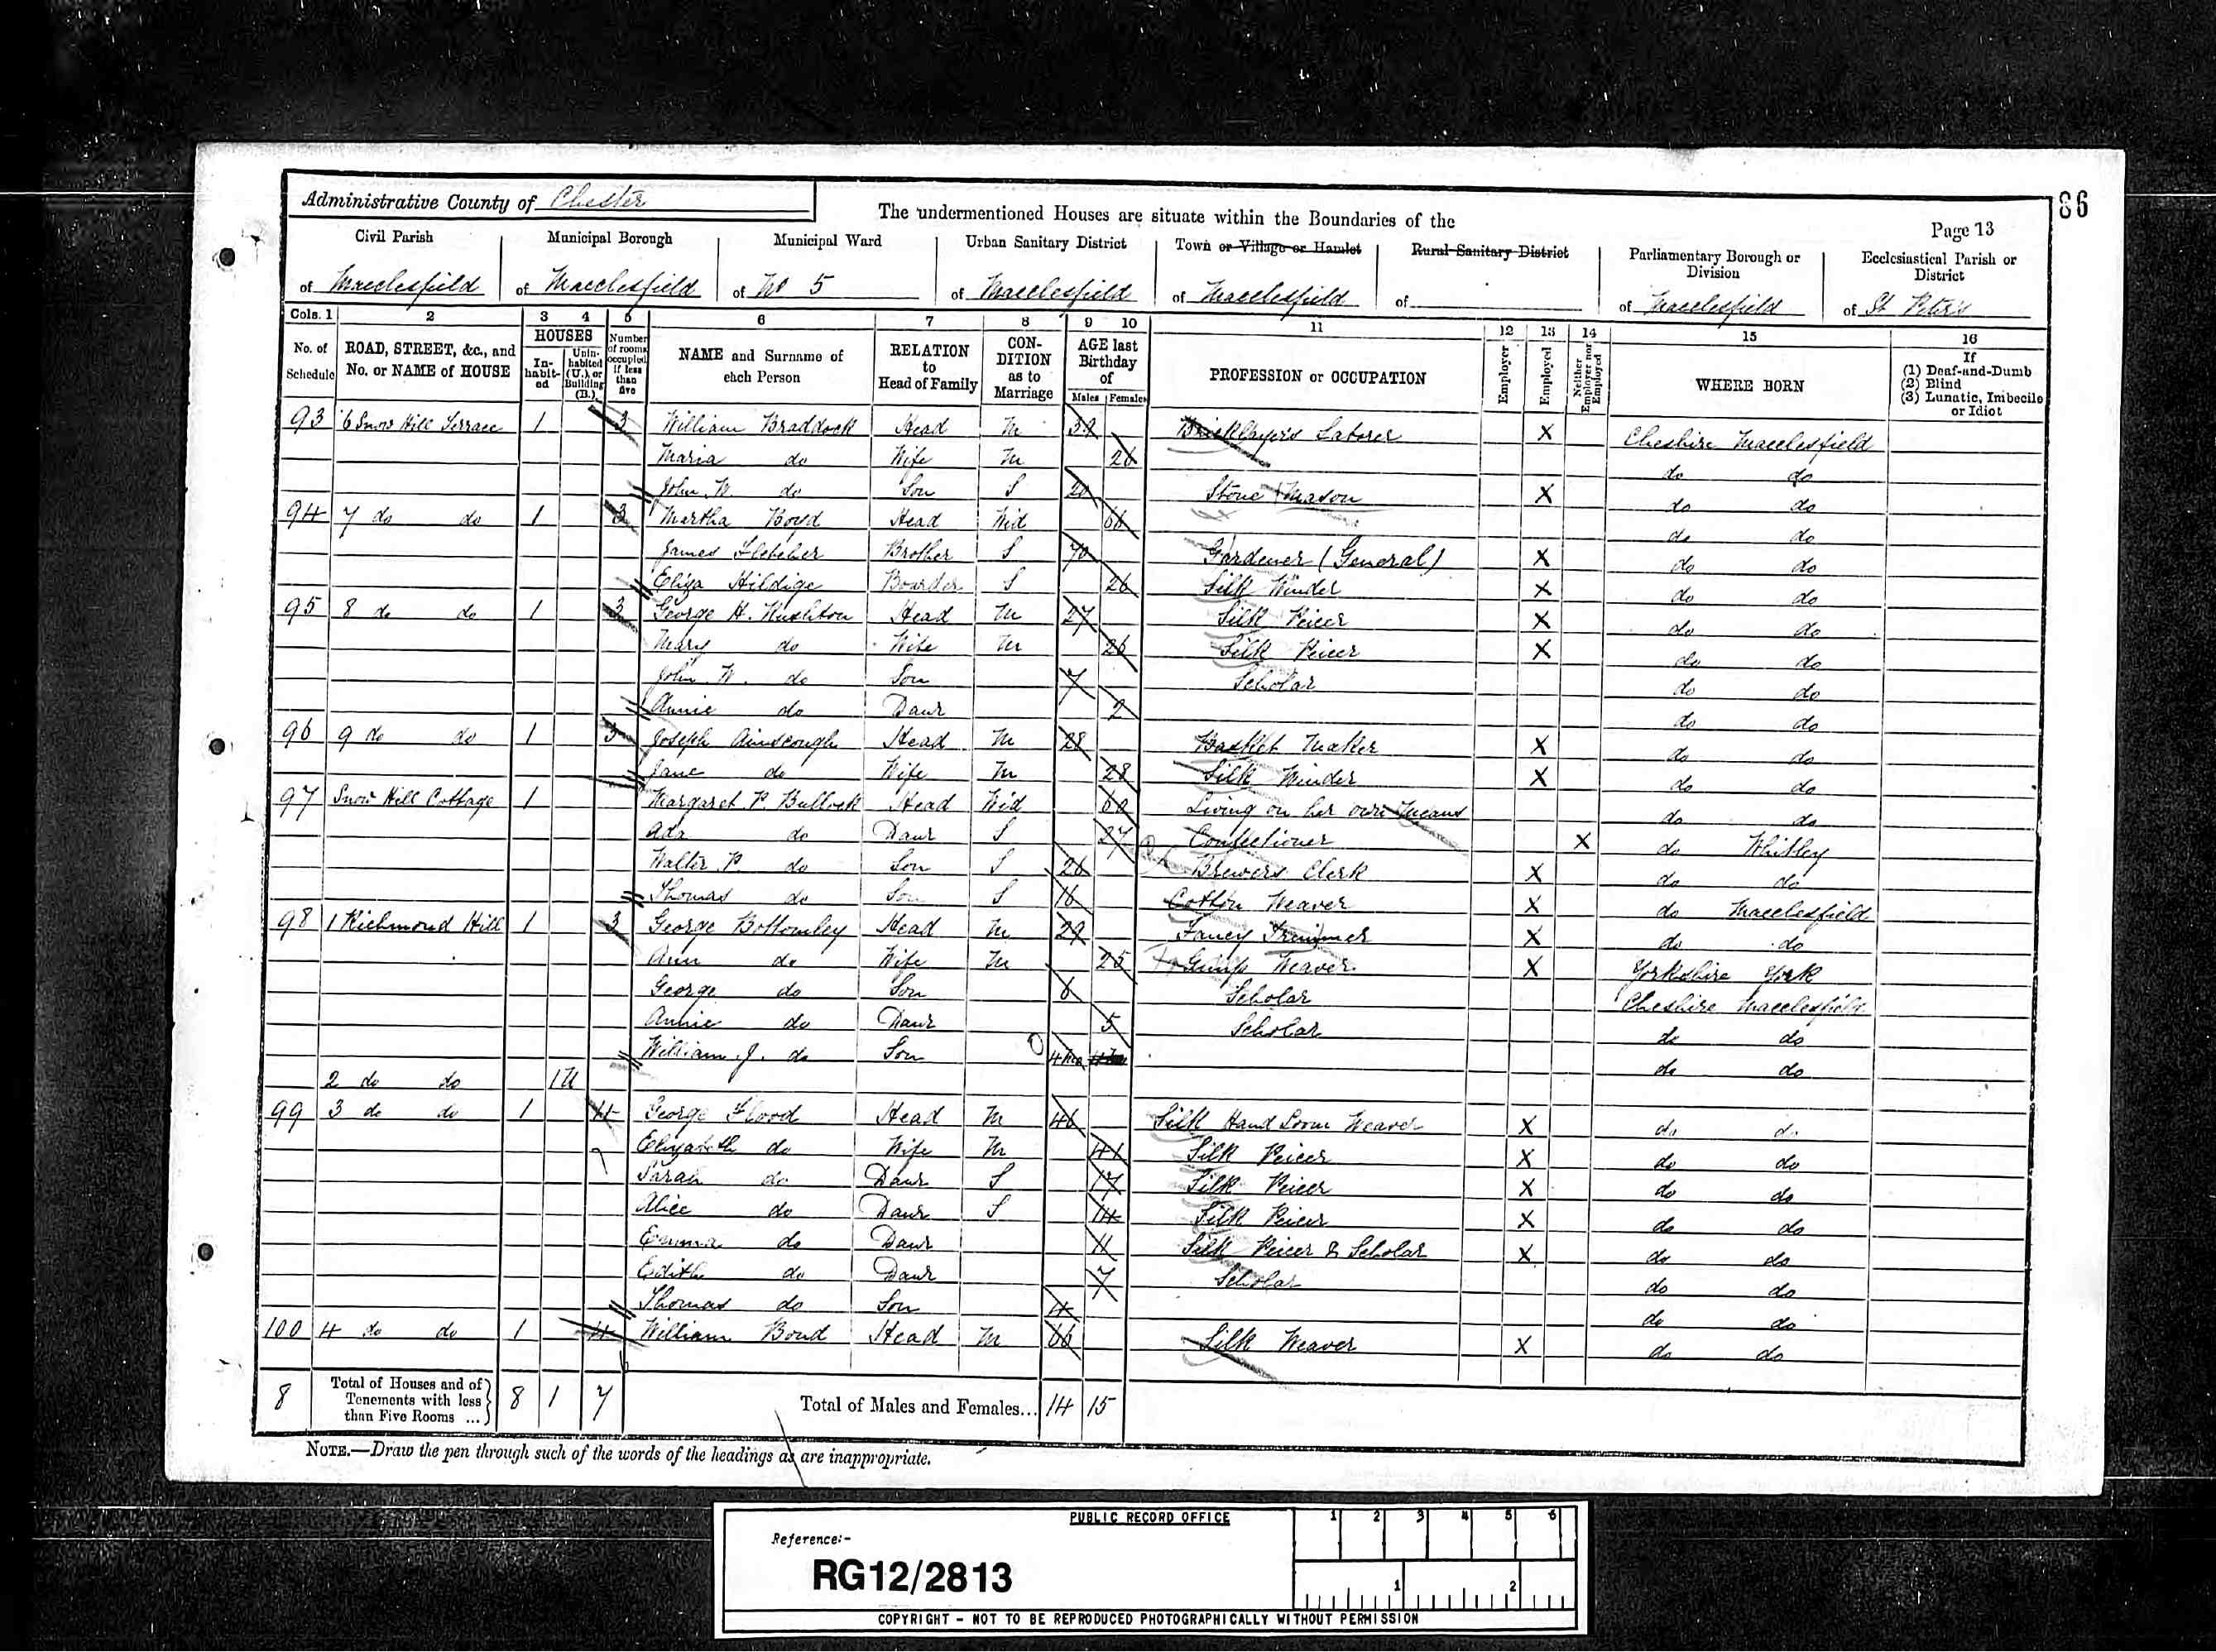 86
Administrative County of Chester
The undermentioned Houses are situate within the Boundaries of the
Page 13
Civil Parish Municipal Borough Municipal Ward Urban Sanitary District Town or Village or Hamlet Rural Sanitary District Parliamentary Borough or Division Ecclesiastical Parish or District
of Macclesfield of Macclesfield of No 5 of Macclesfield of Macclesfield of of Macclesfield of St Peter's
Cols. 1 2 3 4 5 6 7 8 9 10 11 12 13 14 15 16
No. of Schedule ROAD, STREET, &c., and No. or NAME of HOUSE HOUSES In-habit-ed Unin-habited (U.) or Building (B.) Number of rooms occupied if less than five NAME and Surname of each Person RELATION to Head of Family CON-DITION as to Marriage AGE last Birthday of Males Females PROFESSION or OCCUPATION Employer Employed Neither Employer nor Employed WHERE BORN If (1) Deaf-and-Dumb (2) Blind (3) Lunatic, Imbecile or Idiot
93 6 Snow Hill Terrace 1 3 William Braddock Head M 39 Bricklayer's Laborer X Cheshire Macclesfield
Maria do Wife M 26 do do
John W. do Son S 20 Stone Mason X do do
94 7 do do 1 3 Martha Boyd Head Wid 66 do do
James Fletcher Brother S 70 Gardener (General) X do do
Eliza Hildige Boarder S 26 Silk Winder X do do
95 8 do do 1 3 George H. Rushton Head M 27 Silk Peicer X do do
Mary do Wife M 26 Silk Peicer X do do
John W. do Son 7 Scholar do do
Annie do Daur 2 do do
96 9 do do 1 3 Joseph Ainscough Head M 28 Basket Maker X do do
Jane do Wife M 28 Silk Winder X do do
97 Snow Hill Cottage 1 Margaret P. Bullock Head Wid 60 Living on her own Means do do
Ada do Daur S 27 Confectioner X do Whitley
Walter P. do Son S 26 Brewers Clerk X do do
Thomas do Son S 16 Cotton Weaver X do Macclesfield
98 1 Richmond Hill 1 3 George Bottomley Head M 29 Fancy Trimmer X do do
Ann do Wife M 25 Gimp Weaver X Yorkshire York
George do Son 6 Scholar Cheshire Macclesfield
Annie do Daur 5 Scholar do do
William J. do Son 4 Mo do do
2 do do 1U
99 3 do do 1 4 George Flood Head M 46 Silk Hand Loom Weaver X do do
Elizabeth do Wife M 41 Silk Peicer X do do
Sarah do Daur S 17 Silk Peicer X do do
Alice do Daur S 14 Silk Peicer X do do
Emma do Daur 11 Silk Peicer & Scholar X do do
Edith do Daur 7 Scholar do do
Thomas do Son 4 do do
100 4 do do 1 4 William Bond Head M 66 Silk Weaver X do do
8 Total of Houses and of Tenements with less than Five Rooms ... 8 1 7 Total of Males and Females... 14 15
NOTE.—Draw the pen through such of the words of the headings as are inappropriate.
PUBLIC RECORD OFFICE
1 2 3 4 5 6
Reference:-
RG12/2813
1 2
COPYRIGHT - NOT TO BE REPRODUCED PHOTOGRAPHICALLY WITHOUT PERMISSION